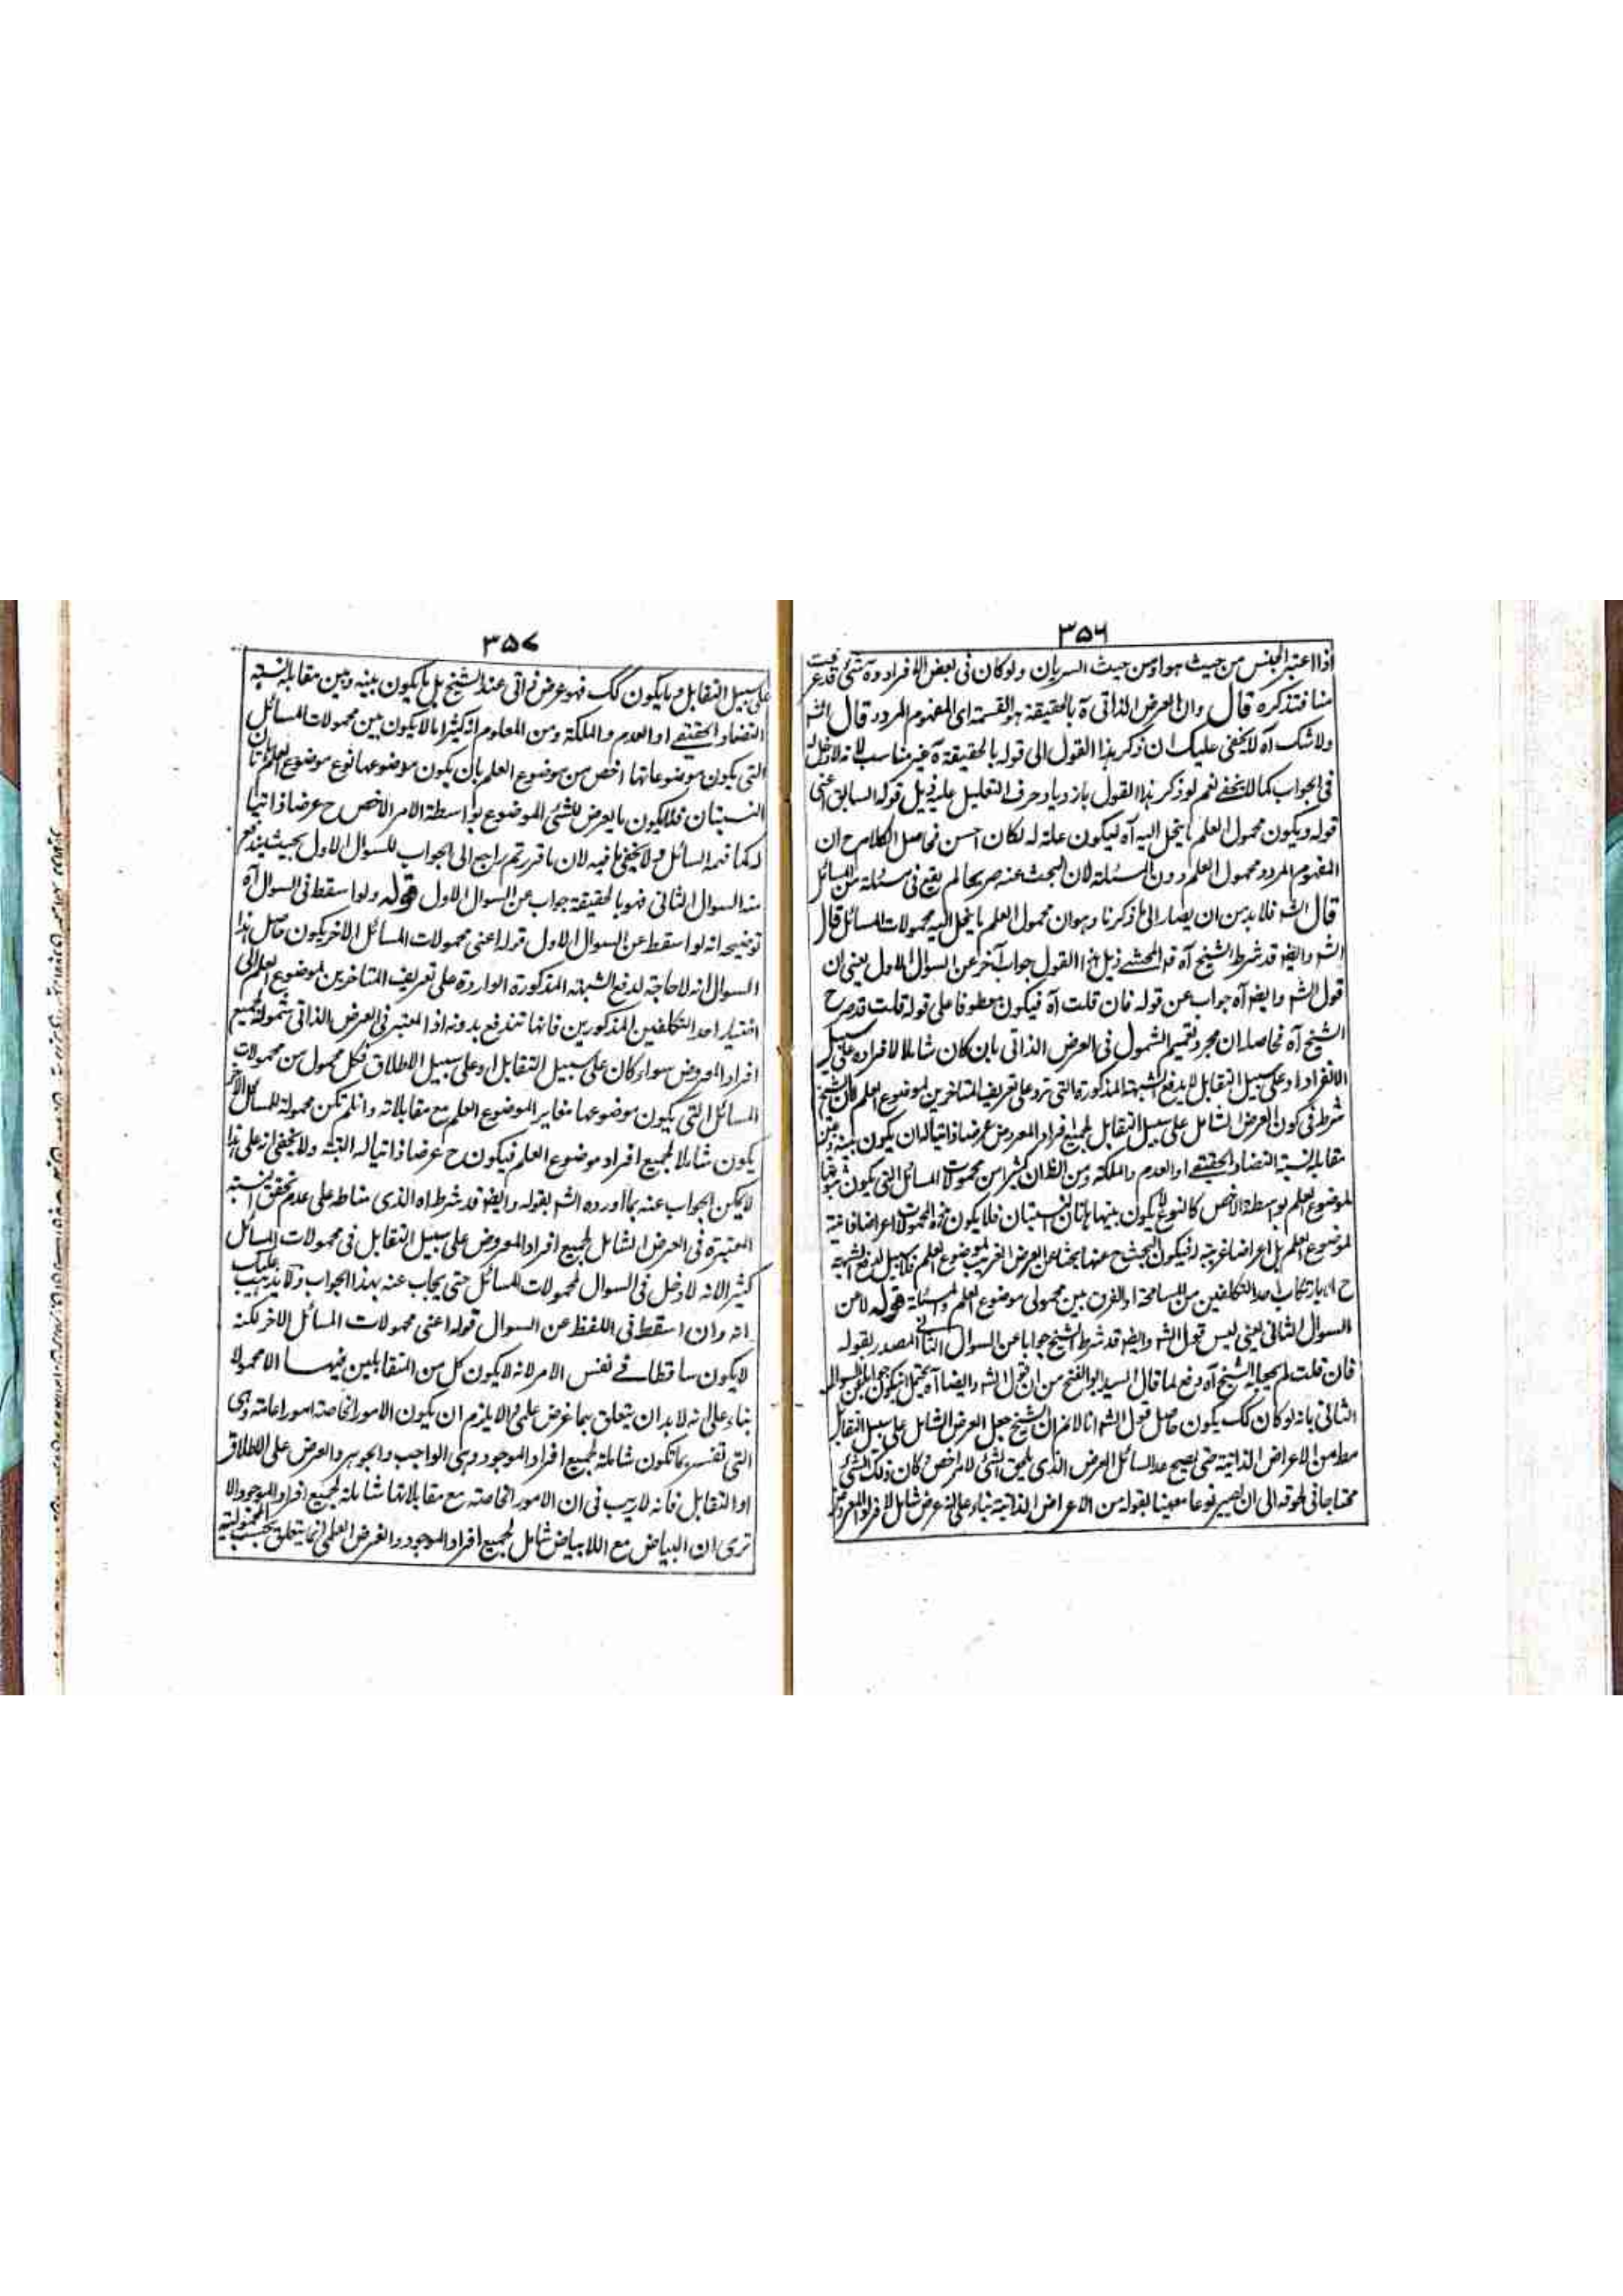 ٣٥٦
اذا اعتبر الجنس من حيث هو او من حيث السريان ولو كان فى بعض الافراد دة شئ قد عرفت
منا فتذكره قال وان العرض الذاتى آه بالحقيقة هو القسمة اى المفهوم المردد قال الشر
ولا شك آه لا يخفى عليك ان ذكر هذا القول الى قوله بالحقيقة آه غير مناسب لانه لا دخل له
فى الجواب كما لا يخفے نعم لو ذكر هذا القول بازدياد حرف التعليل عليه ذيل قوله السابق اعنى
قوله ويكون محمول العلم ما ينحل اليه آه ليكون علة له لكان احسن فحاصل الكلام ح ان
المفهوم المردد محمول العلم دون المسئلة لان البحث عنه صريحا لم يقع فى مسئلة من المسائل
قال الشر فلا بد من ان يصار الى ما ذكرنا وهو ان محمول العلم ما ينحل اليه محمولات المسائل قال
الشر وايضا قد شرط الشيخ آه قد المحشے ذيل هذا القول جواب آخر عن السوال الاول يعنى ان
قول الشر وايضا آه جواب عن قوله فان قلت آه فيكون معطوفا على قوله قلت قد صرح
الشيخ آه فحاصله ان مجرد تعميم الشمول فى العرض الذاتى بان كان شاملا لافراده على سبيل
الانفراد او على سبيل التقابل لا يدفع الشبهة المذكورة التى ترد على تعريف المتاخرين لموضوع العلم فان الشيخ
شرط فى كون العرض الشامل على سبيل التقابل لجميع افراد المعروض عرضا ذاتيا له ان يكون بينه وبين
مقابله نسبة التضاد الحقيقے او العدم والملكة ومن الظاهر ان كثيرا من محمولات المسائل التى يكون ثبوتها
لموضوع العلم بواسطة الاخص كالنوع لا يكون بينها هاتان النسبتان فلا يكون هذه المحمولات اعراضا ذاتية
لموضوع العلم بل اعراضا غريبة له فيكون البحث ح عنها بحثا عن العرض الغريب لموضوع العلم فلا سبيل لدفع الشبهة
ح الا بارتكاب احد التكلفين من المسامحة او الفرق بين محمولى موضوع العلم والمسئلة قوله لا عن
السوال الثانى يعنى ليس قول الشر وايضا قد شرط الشيخ جوابا عن السوال الثانى المصدر بقوله
فان قلت لم يجعله الشيخ آه دفع لما قال السيد ابو الفتح من ان قول الشر وايضا آه يحتمل ان يكون جوابا عن السوال
الثانى بانه لو كان كك يكون حاصل قول الشر انا لا نم ان الشيخ جعل العرض الشامل على سبيل التقابل
مط من الاعراض الذاتية حتى يصح عد المسائل العرض الذى يلحق الشئ لامر اخص وكان ذلك الشئ
محتاجا فى لحوقه الى ان يصير نوعا معينا بقوله من الاعراض الذاتية بناء على انه عرض شامل لافراد المعروض
٣٥٧
على سبيل التقابل وما يكون كك فهو عرض ذاتى عند الشيخ بل ما يكون بينه وبين مقابله نسبة
التضاد الحقيقے او العدم والملكة ومن المعلوم ان كثيرا ما لا يكون بين محمولات المسائل
التى يكون موضوعاتها اخص من موضوع العلم بان يكون موضوعها نوع موضوع العلم هاتان
النسبتان فلا يكون ما يعرض للشئ الموضوع بواسطة الامر الاخص ح عرضا ذاتيا
له كما فهمه السائل ولا يخفى ما فيه لان ما قررتم راجع الى الجواب للسوال الاول بحيث يندفع
منه السوال الثانى فهو بالحقيقة جواب عن السوال الاول قوله ولو اسقط فى السوال آه
توضيحه انه لو اسقط عن السوال الاول قوله اعنى محمولات المسائل الاخر يكون حاصل هذا
السوال انه لا حاجة لدفع الشبهة المذكورة الواردة على تعريف المتاخرين لموضوع العلم الى
اختيار احد التكلفين المذكورين فانها تندفع بدونه اذ المعتبر فى العرض الذاتى شموله لجميع
افراد المعروض سواء كان على سبيل التقابل او على سبيل الاطلاق فكل محمول من محمولات
المسائل التى يكون موضوعها مغاير الموضوع العلم مع مقابلاته وان لم تكن محمولة للمسائل الاخر
يكون شاملا لجميع افراد موضوع العلم فيكون ح عرضا ذاتيا له البتة ولا يخفى انه على هذا
لا يمكن الجواب عنه بما اورده الشر بقوله وايضا قد شرط اه الذى مناطه على عدم تحقق النسبة
المعتبرة فى العرض الشامل لجميع افراد المعروض على سبيل التقابل فى محمولات المسائل
كثيرا لانه لا دخل فى السوال لمحمولات المسائل حتى يجاب عنه بهذا الجواب ولا يذهب عليك
انه وان اسقط فى اللفظ عن السوال قوله اعنى محمولات المسائل الاخر لكنه
لا يكون ساقطا فے نفس الامر لانه لا يكون كل من المتقابلين فيها الا محمولا
بناء على انه لا بد ان يتعلق بهما غرض علمى والا يلزم ان يكون الامور الخاصة امورا عامة وهى
التى تفسر بما تكون شاملة لجميع افراد الموجود وهى الواجب والجوهر والعرض على الاطلاق
او التقابل فانه لا ريب فى ان الامور الخاصة مع مقابلاتها شاملة لجميع افراد الموجود الا
ترى ان البياض مع اللابياض شامل لجميع افراد الموجود والغرض العلمى انما يتعلق بحسب المحمولية